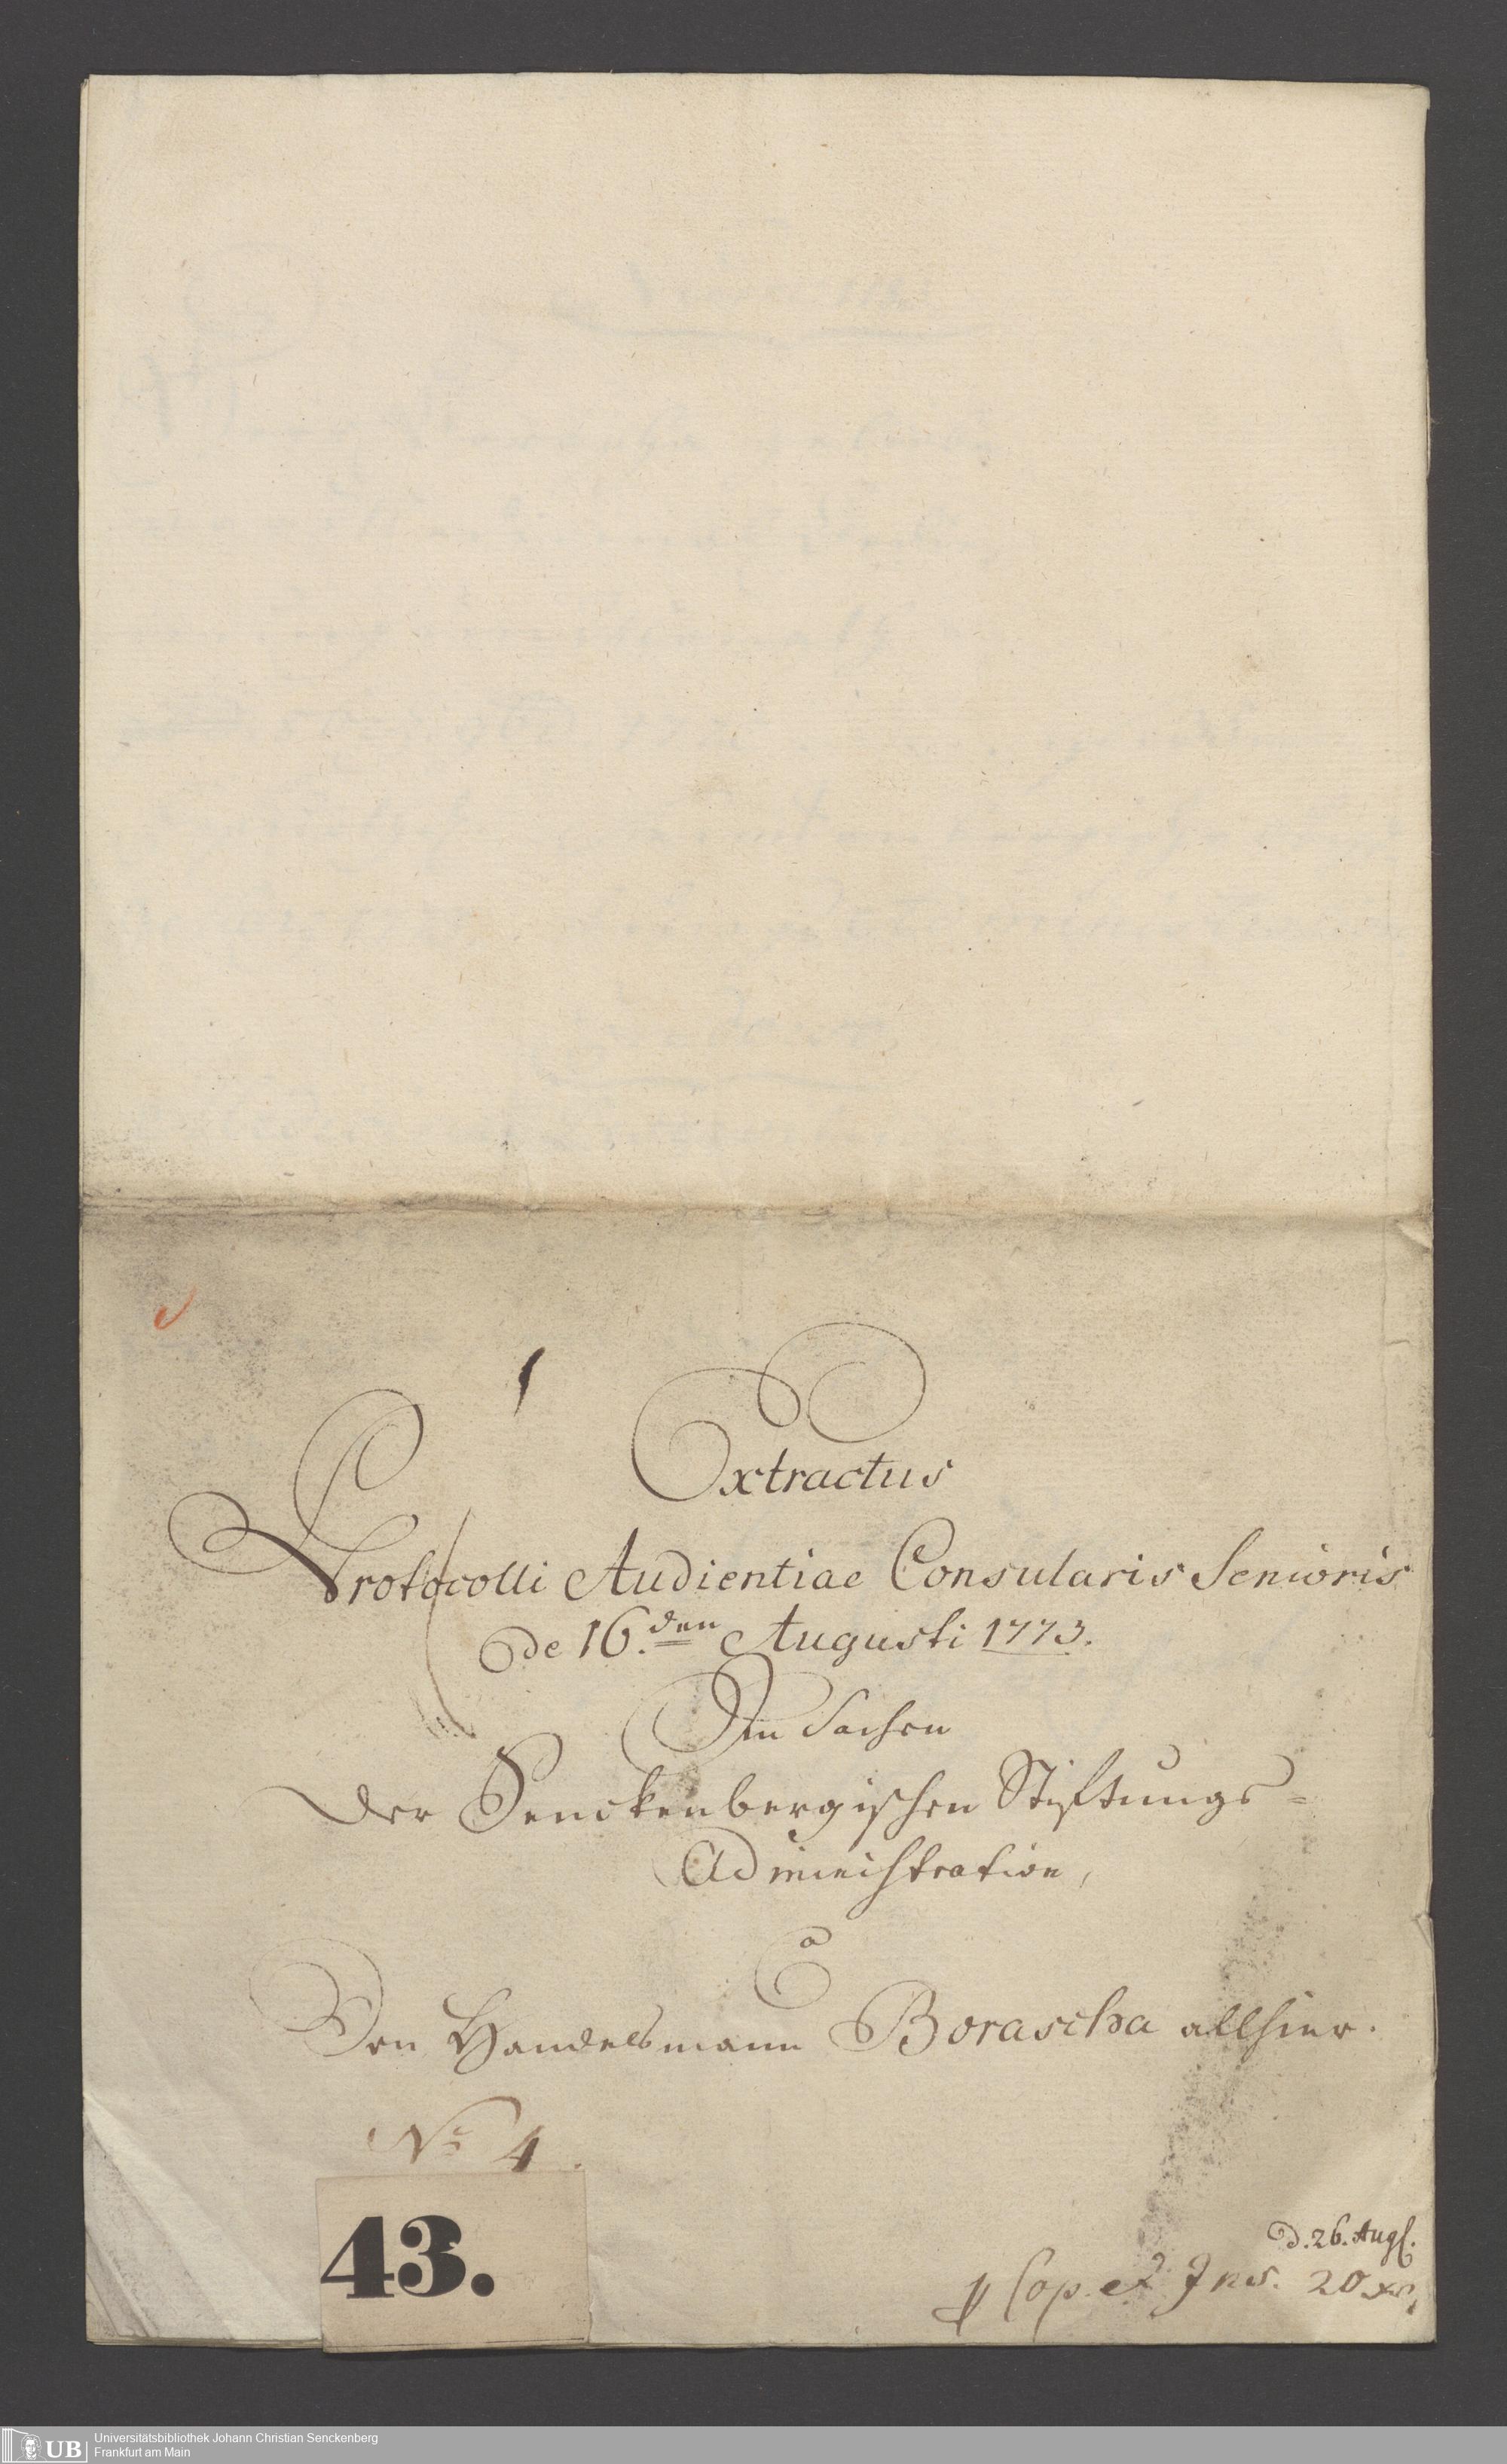 Extractus
Protocolli Audientiae Consularis Senioris
de 16.den Augusti 1773.
In Sachen
der Senckenbergischen Stiftungs=
Administration,
Ca
Den Handelsmann Borascha allhier.
No 4.
43.
d. 26. Augs.
p Cop. et Ins. 20 xr.
UB
Universitätsbibliothek Johann Christian Senckenberg
Frankfurt am Main